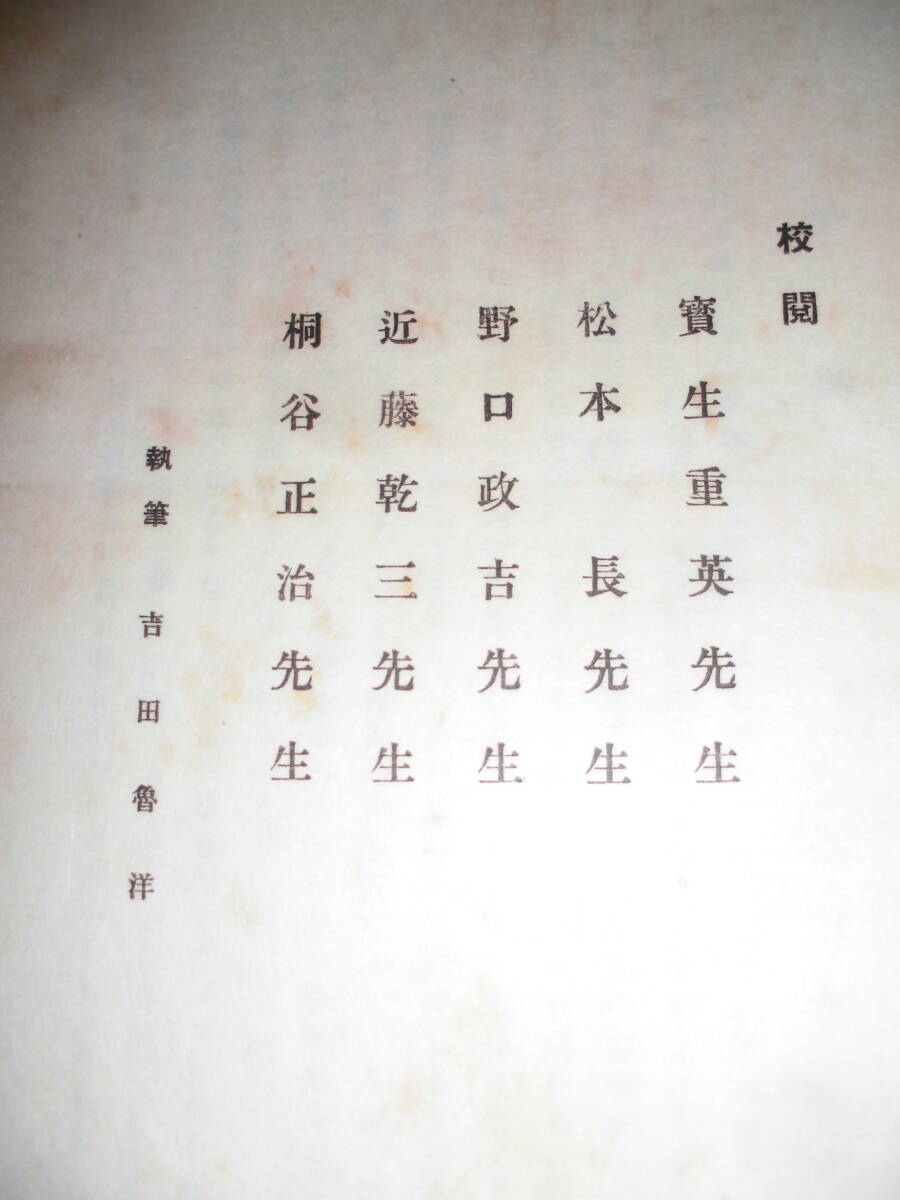 校閲
寳生重英先生
松本長先生
野口政吉先生
近藤乾三先生
桐谷正治先生
執筆 吉田魯洋